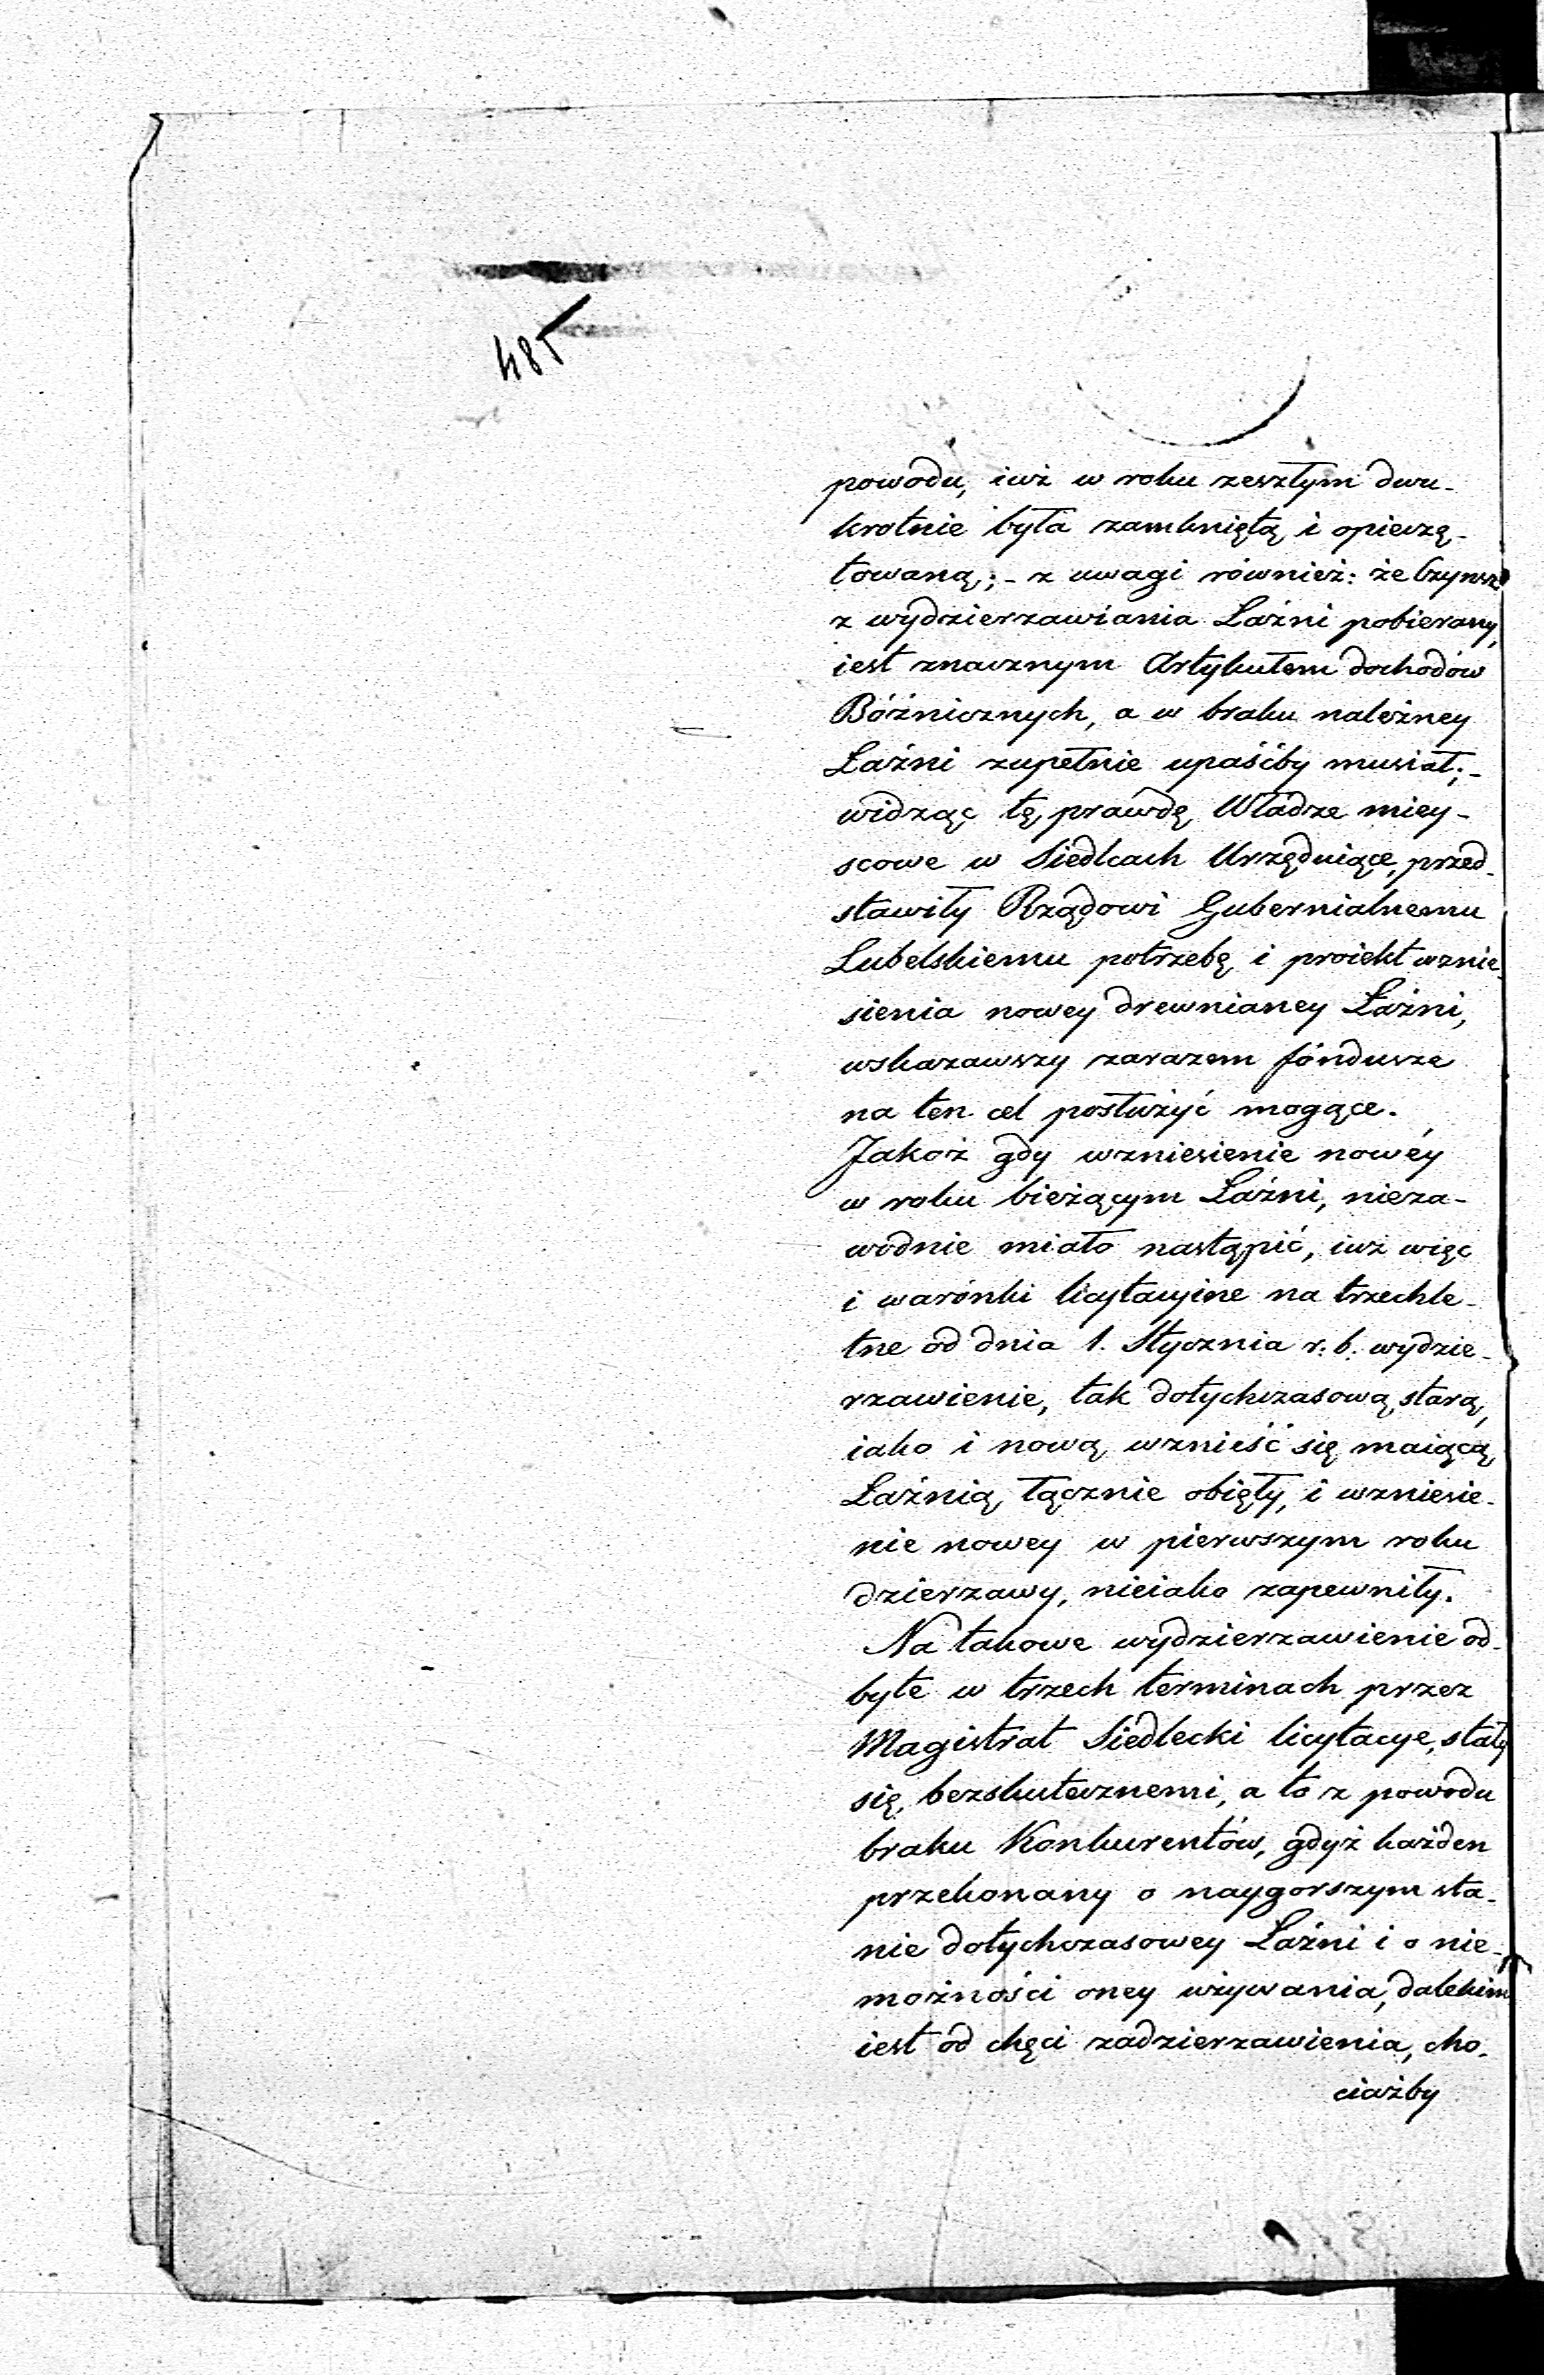 485
powodu, iuż w roku zeszłym dwu-
krotnie była zamkniętą i opieczę-
towaną; - z uwagi również: że Czynsz
z wydzierzawiania Łaźni pobierany,
iest znacznym Artykułem dochodów
Bóżnicznych, a w braku należney
Łaźni zupełnie upaśćby musiał; -
widząc tę prawdę Władze miey-
scowe w Siedlcach Urzęduiące, przed-
stawiły Rządowi Gubernialnemu
Lubelskiemu potrzebę i proiekt wznie-
sienia nowey drewnianey Łaźni,
wskazawszy zarazem fóndusze
na ten cel posłużyć mogące.
Jakoż gdy wzniesienie nowéy
w roku bieżącym Łaźni, nieza-
wodnie miało nastąpić, iuż więc
i warónki licytacyine na trzechle-
tne od dnia 1. Stycznia r. b. wydzie-
rzawienie, tak dotychczasową starą,
iako i nową wznieść się maiącą
Łaźnią, łącznie obięły, i wzniesie-
nie nowey w pierwszym roku
dzierzawy, nieiako zapewniły.
Na takowe wydzierzawienie od-
byte w trzech terminach przez
Magistrat Siedlecki licytacye, stały
się bezskutecznemi, a to z powodu
braku Konkurentów, gdyż każden
przekonany o naygorszym sta-
nie dotychczasowey Łaźni i o nie-
możności oney używania, dalekim
iest od chęci zadzierzawienia, cho-
ciażby